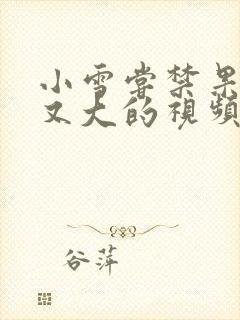 小雪尝禁果
又大的視頻
谷萍